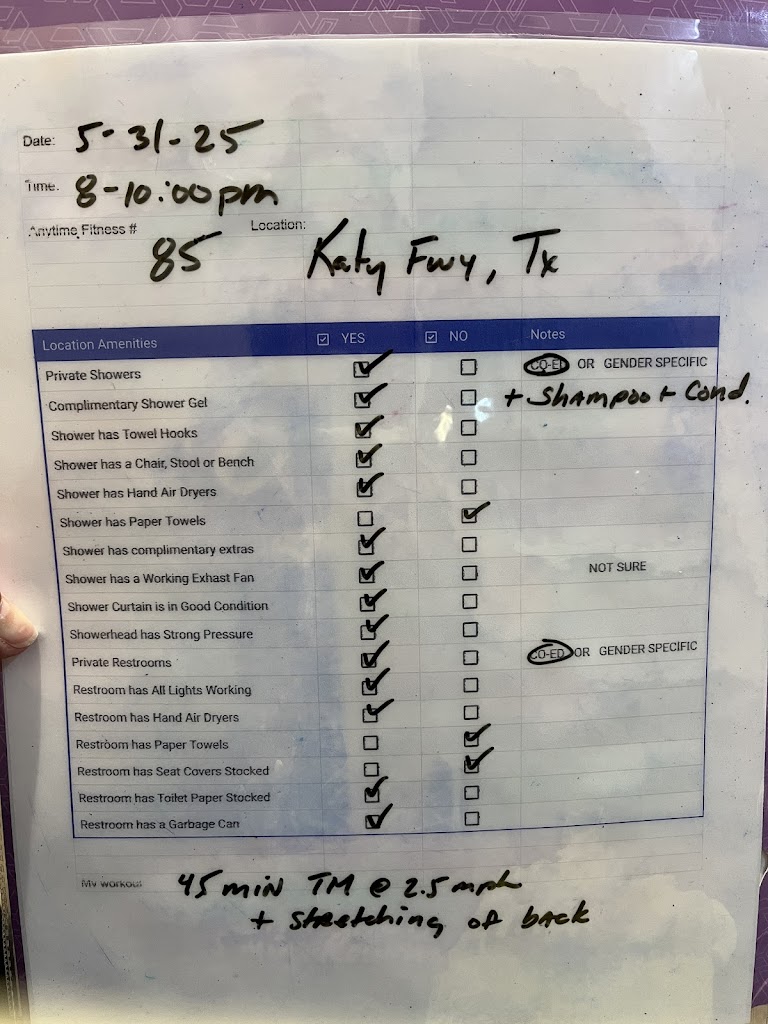 Date: 5-31-25
Time: 8-10:00pm
Anytime Fitness # 85 Location: Katy Fwy, Tx
Location Amenities ☑ YES ☑ NO Notes
Private Showers ☑ ☐ CO-ED OR GENDER SPECIFIC
Complimentary Shower Gel ☑ ☐ + Shampoo + Cond.
Shower has Towel Hooks ☑ ☐
Shower has a Chair, Stool or Bench ☑ ☐
Shower has Hand Air Dryers ☑ ☐
Shower has Paper Towels ☐ ☑
Shower has complimentary extras ☑ ☐
Shower has a Working Exhast Fan ☑ ☐ NOT SURE
Shower Curtain is in Good Condition ☑ ☐
Showerhead has Strong Pressure ☑ ☐
Private Restrooms ☑ ☐ CO-ED OR GENDER SPECIFIC
Restroom has All Lights Working ☑ ☐
Restroom has Hand Air Dryers ☑ ☐
Restroom has Paper Towels ☐ ☑
Restroom has Seat Covers Stocked ☐ ☑
Restroom has Toilet Paper Stocked ☑ ☐
Restroom has a Garbage Can ☑ ☐
My workout 45 min TM @ 2.5 mph
+ stretching of back